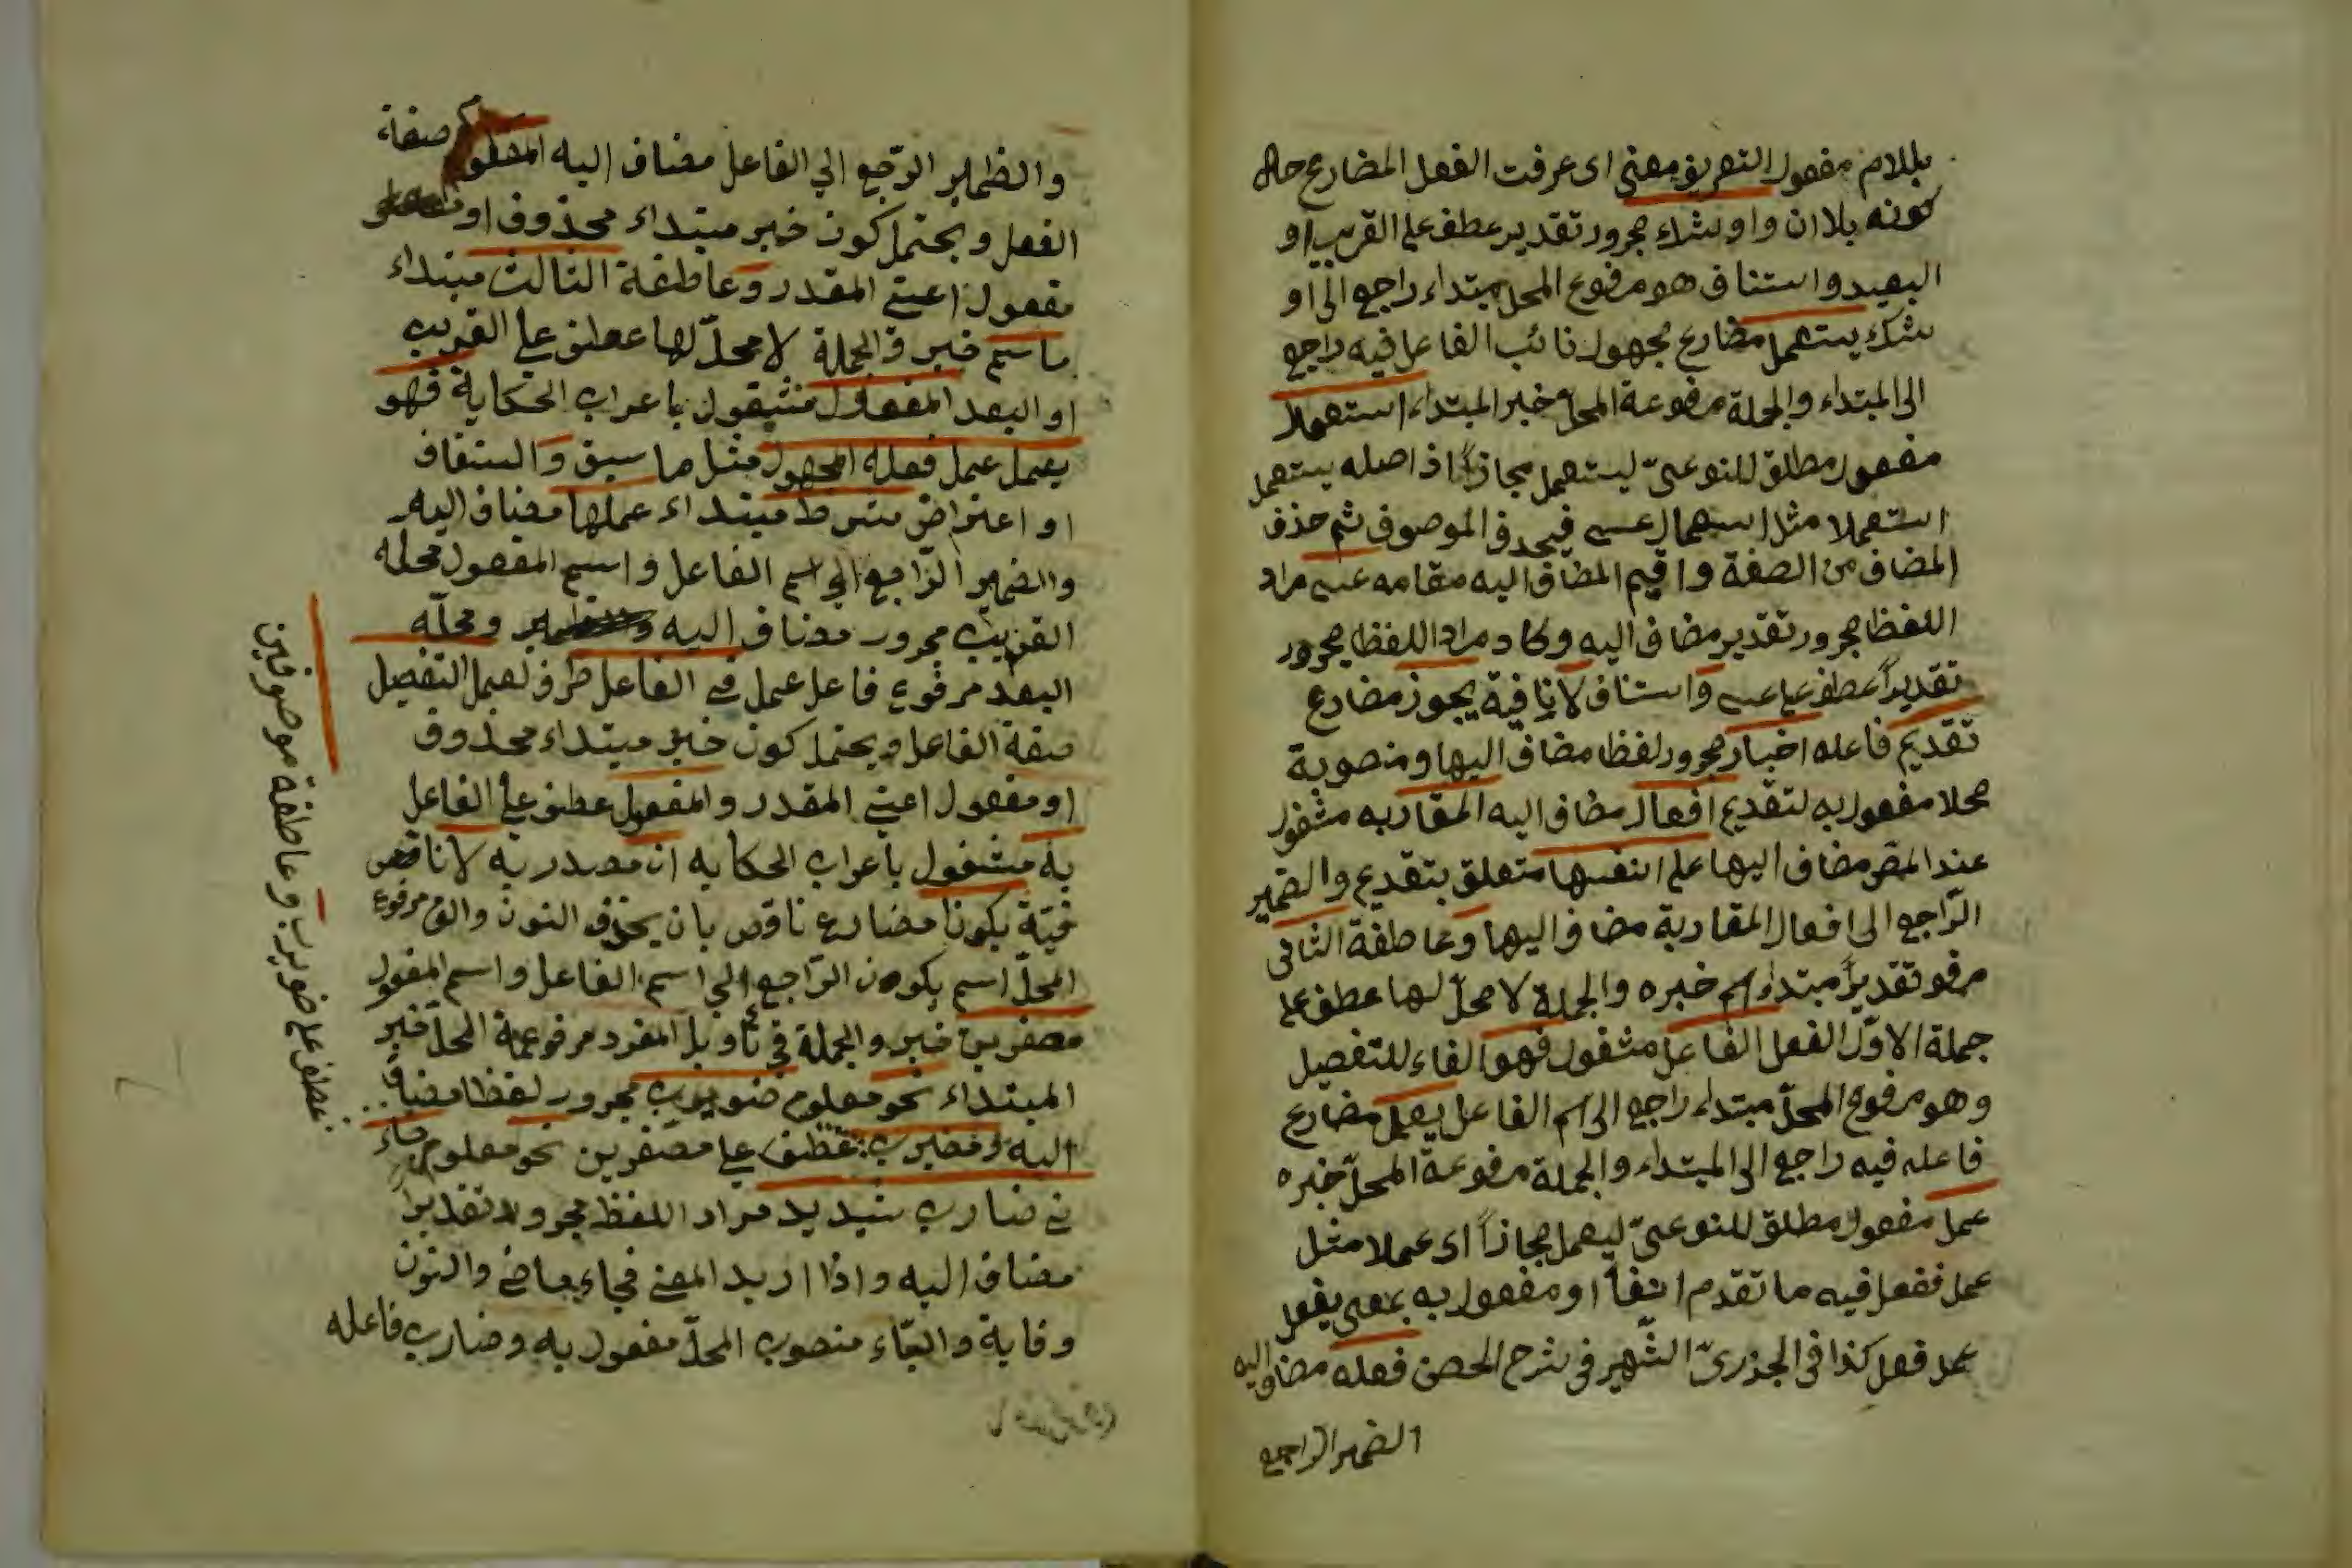 بلالام مفعول التعريف معنى اى عرفت الفعل المضارع حال
كونه بلا ان واوشك مجرور تقدير عطف على القريب او
البعيد واستناف هو مرفوع المحل مبتداء راجع الى او
شك يستعمل مضارع مجهول نائب الفاعل فيه راجع
الى المبتداء والجملة مرفوعة المحل خبر المبتداء استعملا
مفعول مطلق للنوعىّ ليستعمل مجازاً اذ اصله يستعمل
استعملا مثل استعمال عسى فيحذف الموصوف ثم حذف
المضاف من الصفة واقيم المضاف اليه مقامه عسى مراد
اللفظ مجرور تقدير مضاف اليه وكاد مراد اللفظ مجرور
تقديراً عطف على عسى واستناف لا نافية يجوز مضارع
تقديم فاعله اخبار مجرور لفظا مضاف اليها ومنصوبة
محلا مفعول به لتقديم افعال مضاف اليه المقاربه مشغول
عند المص مضاف اليها على انفسها متعلق بتقديم والضمير
الرّاجع الى افعال المقاربة مضاف اليها وعاطفة الثانى
مرفو تقديرًا مبتداء اسم خبره والجملة لا محلّ لها عطف على
جملة الاوّل الفعل الفاعل مشغول فهو الفاء للتفصيل
وهو مرفوع المحلّ مبتداء راجع الى اسم الفاعل يعمل مضارع
فاعله فيه راجع الى المبتداء والجملة مرفوعة المحلّ خبره
عمل مفعول مطلق للنوعىّ ليعمل مجازاً اى عملا مثل
عمل ففعل فيه ما تقدم انفاً او مفعول به بمعنى يفعل
عمل فعل كذا فى الجذرىّ الشّهير فى شرح الحصن فعله مضاف اليه
الضمير الراجع
والضمير الرّجع الي الفاعل مضاف اليه المعلوم صفة
الفعل ويحتمل كون خبر مبتداء محذوف او
مفعول اعنى المقدر وعاطفة الثالث مبتداء
ما اسم خبر والجملة لا محلّ لها عطف على القريب
او البعد المفعول مشغول باعراب الحكاية فهو
يعمل عمل فعله المجهول مثل ما سبق والستفاف
او اعتراض شرط مبتداء عملها مضاف اليه
والضمير الرّاجع الي اسم الفاعل واسم المفعول محله
القريب مجرور مضاف اليه ومحلّه
البعد مرفوع فاعل عمل في الفاعل ظرف لعمل التفصيل
صفة الفاعل ويحتمل كون خبر مبتداء محذوف
او مفعول اعنى المقدر والمفعول عطف على الفاعل
به مشغول باعراب الحكايه ان مصدريه لا ناقص
فيّة يكونا مضارع ناقص بان يحذف النون والف مرفوع
المحلّ اسم يكون الرّاجع الي اسم الفاعل واسم المفعول
مصغرين خبر والجملة في تأويل المفرد مرفوعة المحلّ خبر
المبتداء نحو معلوم ضويرب مجرور لفظا مضاف
اليه ومضيرب عطف على مصغرين نحو معلوم جاء
نى ضارب شديد مراد اللفظ مجرور تقديرًا
مضاف اليه واذا اريد المعنى فجاء ماض والنون
وقاية والياء منصوب المحلّ مفعول به وضارب فاعله
عطف على ضويرب وعاطفة موصوفين